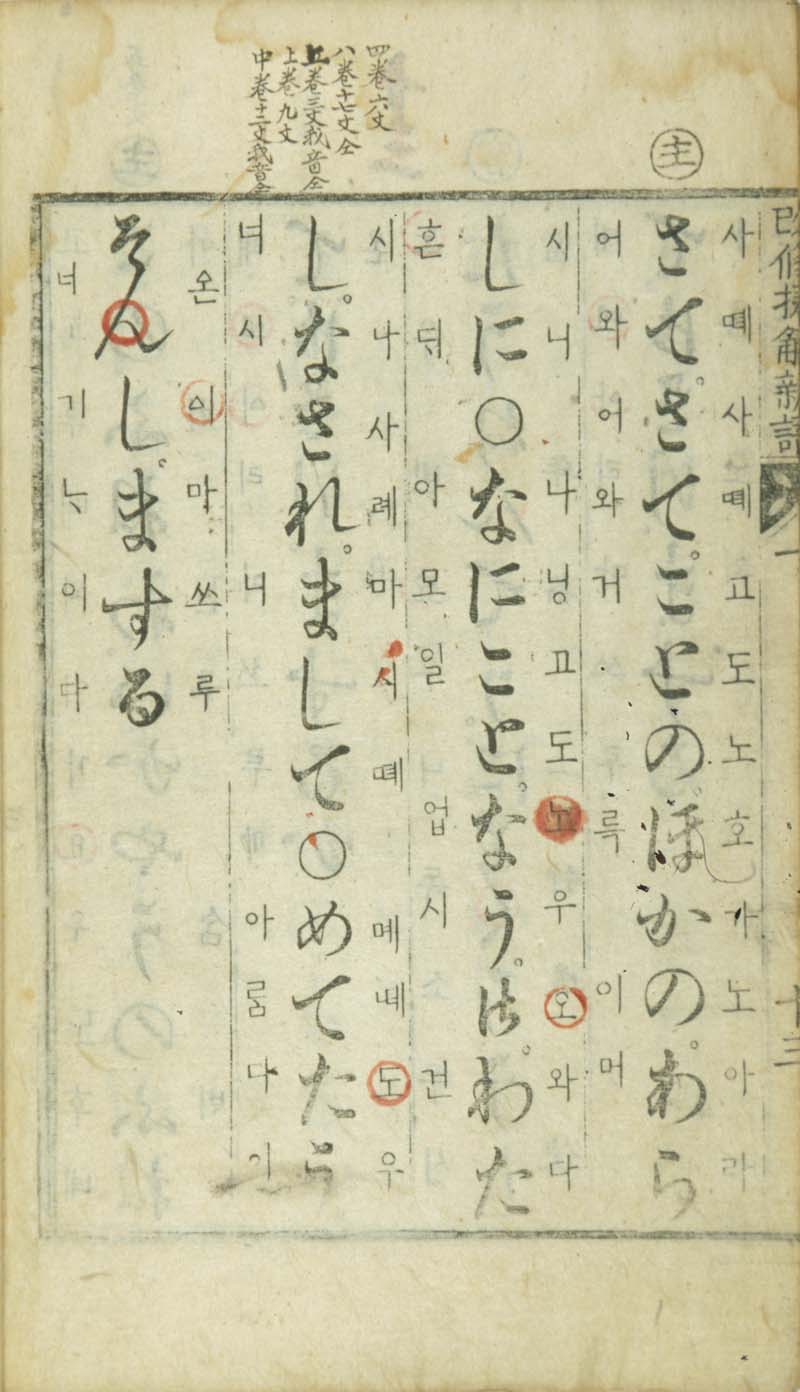 四巻六丈
八巻十七丈仝
五巻三丈我音仝
上巻九丈
中巻十二丈我音仝
主
改修捷解新語 一 十三
사뗴사뗴고도노호가노아라
さてさてことのほかのあら
어와어와거륵이머
시니나닝고도노우오와다
しに○なにことなうはわた
흔ᄃᆡ아모일업시건
시나사례마시뗴메녜도우
し。なされ。まして○めてたう
너시니아ᄅᆞᆷ다이
온이마쓰루
そんし。まする
너기ᄂᆞ이다